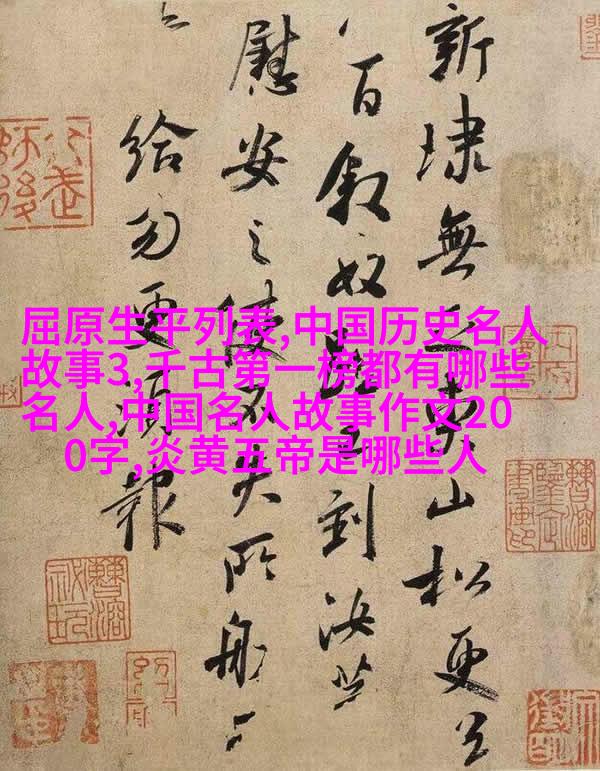 屈原生平列表,中国历史名人
故事3,千古第一榜都有哪些
名人,中国名人故事作文20
0字,炎黄五帝是哪些人
新埭無山松更
百敘奴到汝
慰安之使不失所
給勿更須報